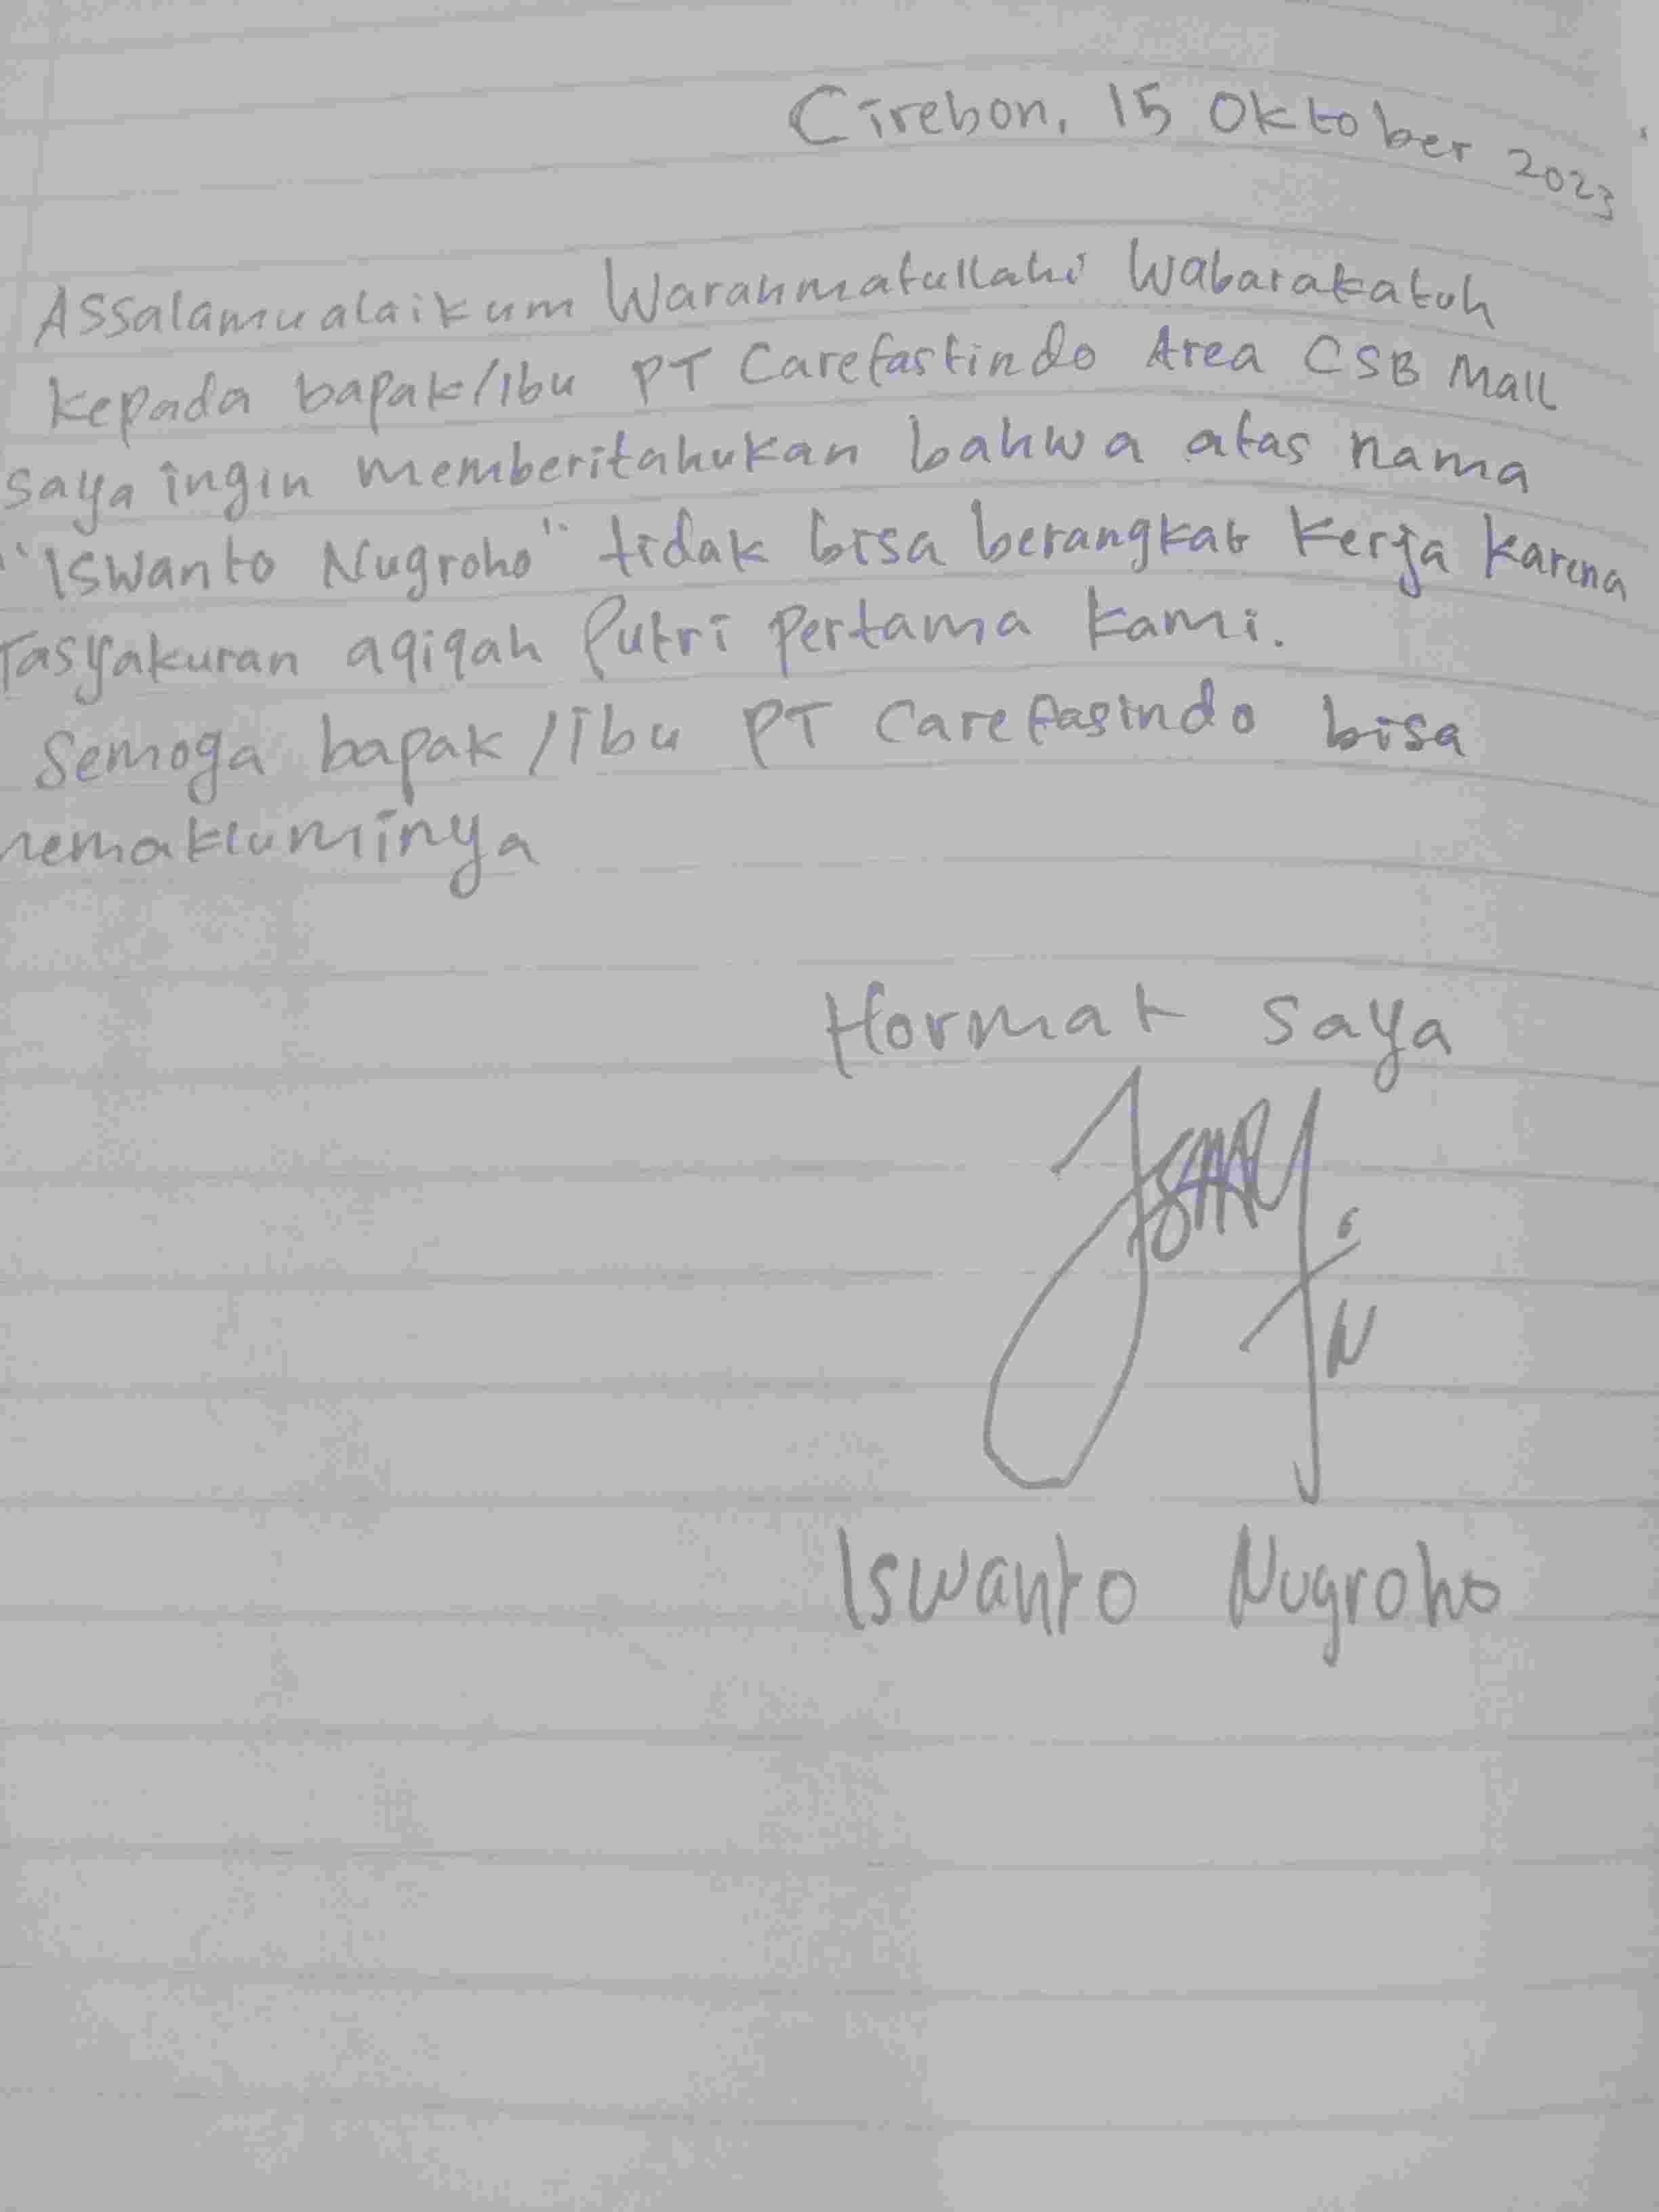 Cirebon, 15 Oktober 2023
Assalamualaikum Warahmatullahi Wabarakatuh
kepada bapak/Ibu PT Carefastindo Area CSB Mall
saya ingin memberitahukan bahwa atas nama
"Iswanto Nugroho" tidak bisa berangkat kerja karena
Tasyakuran aqiqah Putri pertama kami.
Semoga bapak/Ibu PT Carefasindo bisa
memakluminya
Hormat saya
Iswanto Nugroho